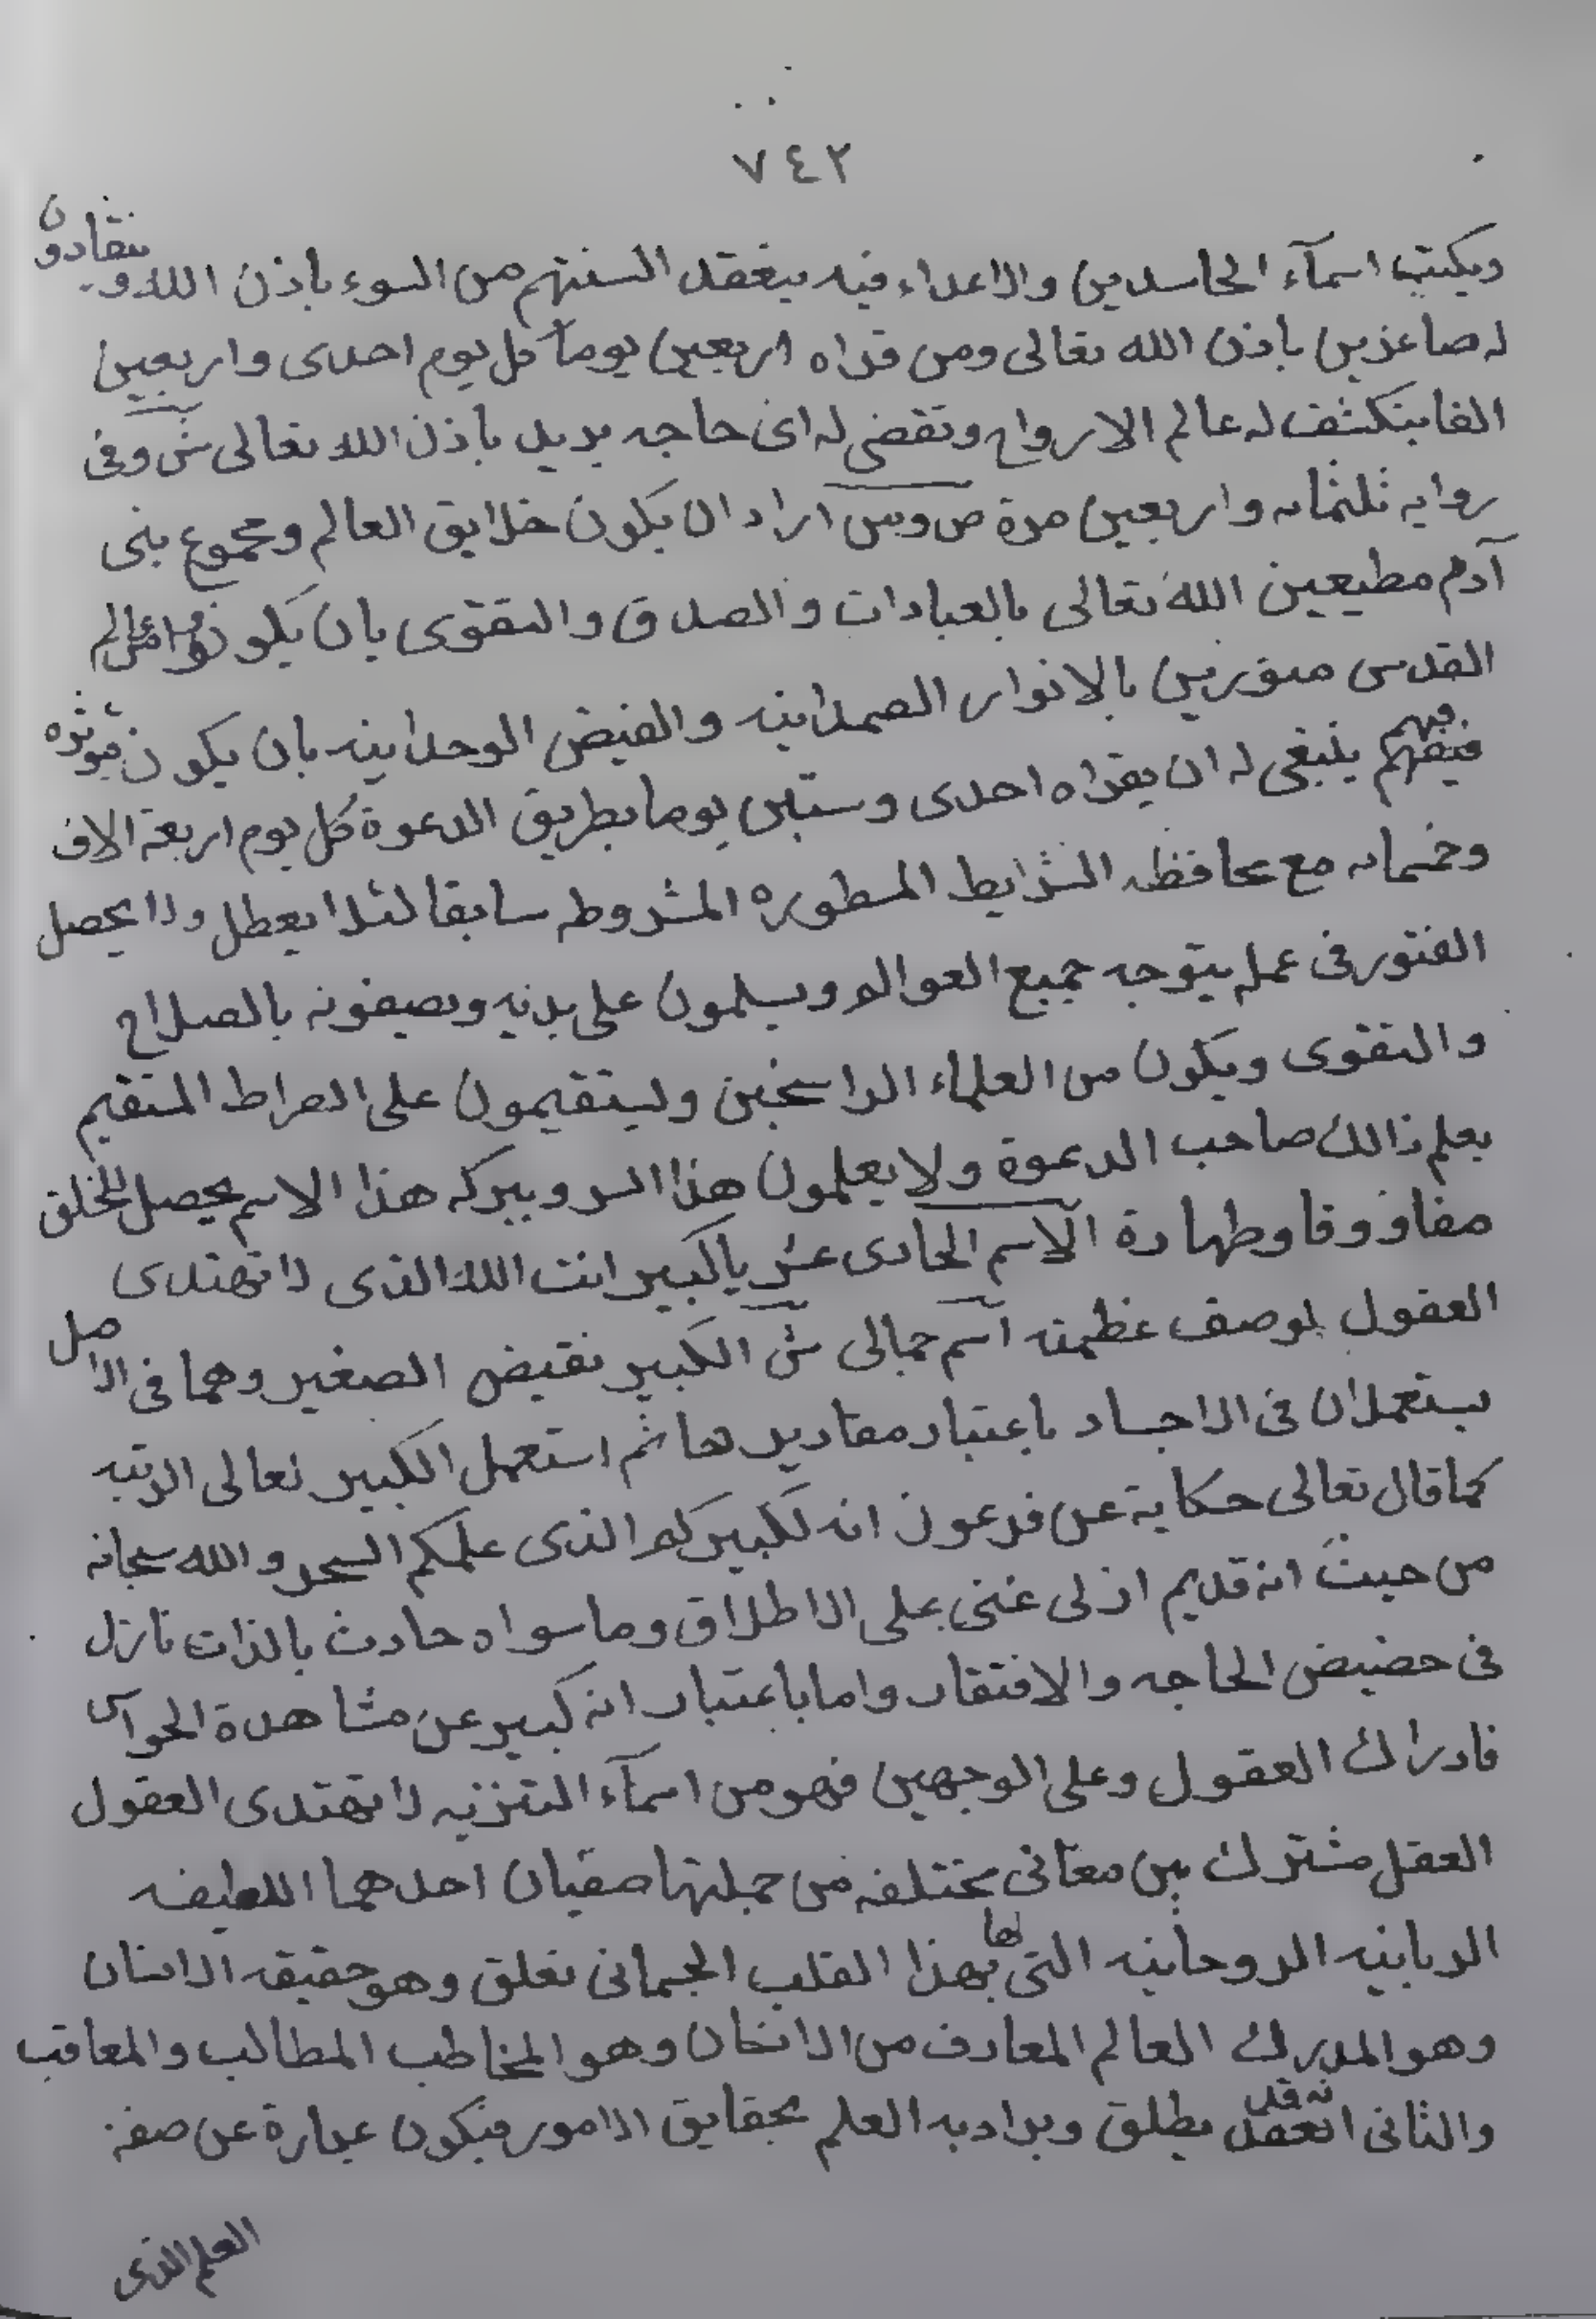 ٧٤٢
ويكتب اسمآء الحاسدين والاعداء فيه ينعقد السنتهم من السوء باذن الله وينقادون
له صاغرين باذن الله تعالى ومن قراه اربعين يوما كل يوم احدى واربعين
الفا ينكشف له عالم الارواح وتقضى له اى حاجه يريد باذن الله تعالى ش وفى
روايه ثلثمائه واربعين مرة ص ومن اراد ان يكون خلايق العالم ومجموع بنى
آدم مطيعين الله تعالى بالعبادات والصدق والتقوى بان يكونوا عالم
القدس منورين بالانوار الصمدانيه والفيض الوحدانيه بان يكون مؤثره
فيهم ينبغى له ان يقراه احدى وستين يوما بطريق الدعوة كل يوم اربعة الاف
وخمسمائه مع محافظه الشرايط المسطوره المشروطه سابقا لئلا يعطل ولا يحصل
الفتور فى عمله يتوجه جميع العوالم ويسلمون على يديه ويصيفونه بالصلاح
والتقوى ويكون من العلماء الراسخين وليستقيمون على الصراط المستقيم
يعلم ذالك صاحب الدعوة ولا يعلمون هذا السر وببركه هذا الاسم يحصل للخلق
وطهارة الاسم الحادى عشر يا كبير انت الله الذى لا تهتدى
العقول لوصف عظمته اسم جمالى ش الكبير نقيض الصغير وهما فى الاصل
يستعملان فى الاجساد باعتبار مقاديرها ثم استعمل الكبير لعالى الرتبه
كما قال تعالى حكاية عن فرعون انه لكبيركم الذى علمكم السحر والله سبحانه
من حيث انه قديم ازلى غنى على الاطلاق وما سواه حادث بالذات نازل
فى حضيض الحاجه والافتقار واما باعتبار انه كبير عن مشاهدة الحواس
فادراك العقول وعلى الوجهين فهو من اسمآء التنزيه لا تهتدى العقول
العقل مشترك بين معانى مختلفه من جملتها صفيان احدهما اللطيفه
الربانيه الروحانيه التى لها بهذا القلب الجسمانى تعلق وهو حقيقه الانسان
وهو المدرك العالم المعارف من الانسان وهو المخاطب المطالب والمعاقب
والثانى انه قد يطلق ويراد به العلم بحقايق الامور فيكون عبارة عن صفة
العلم الذى